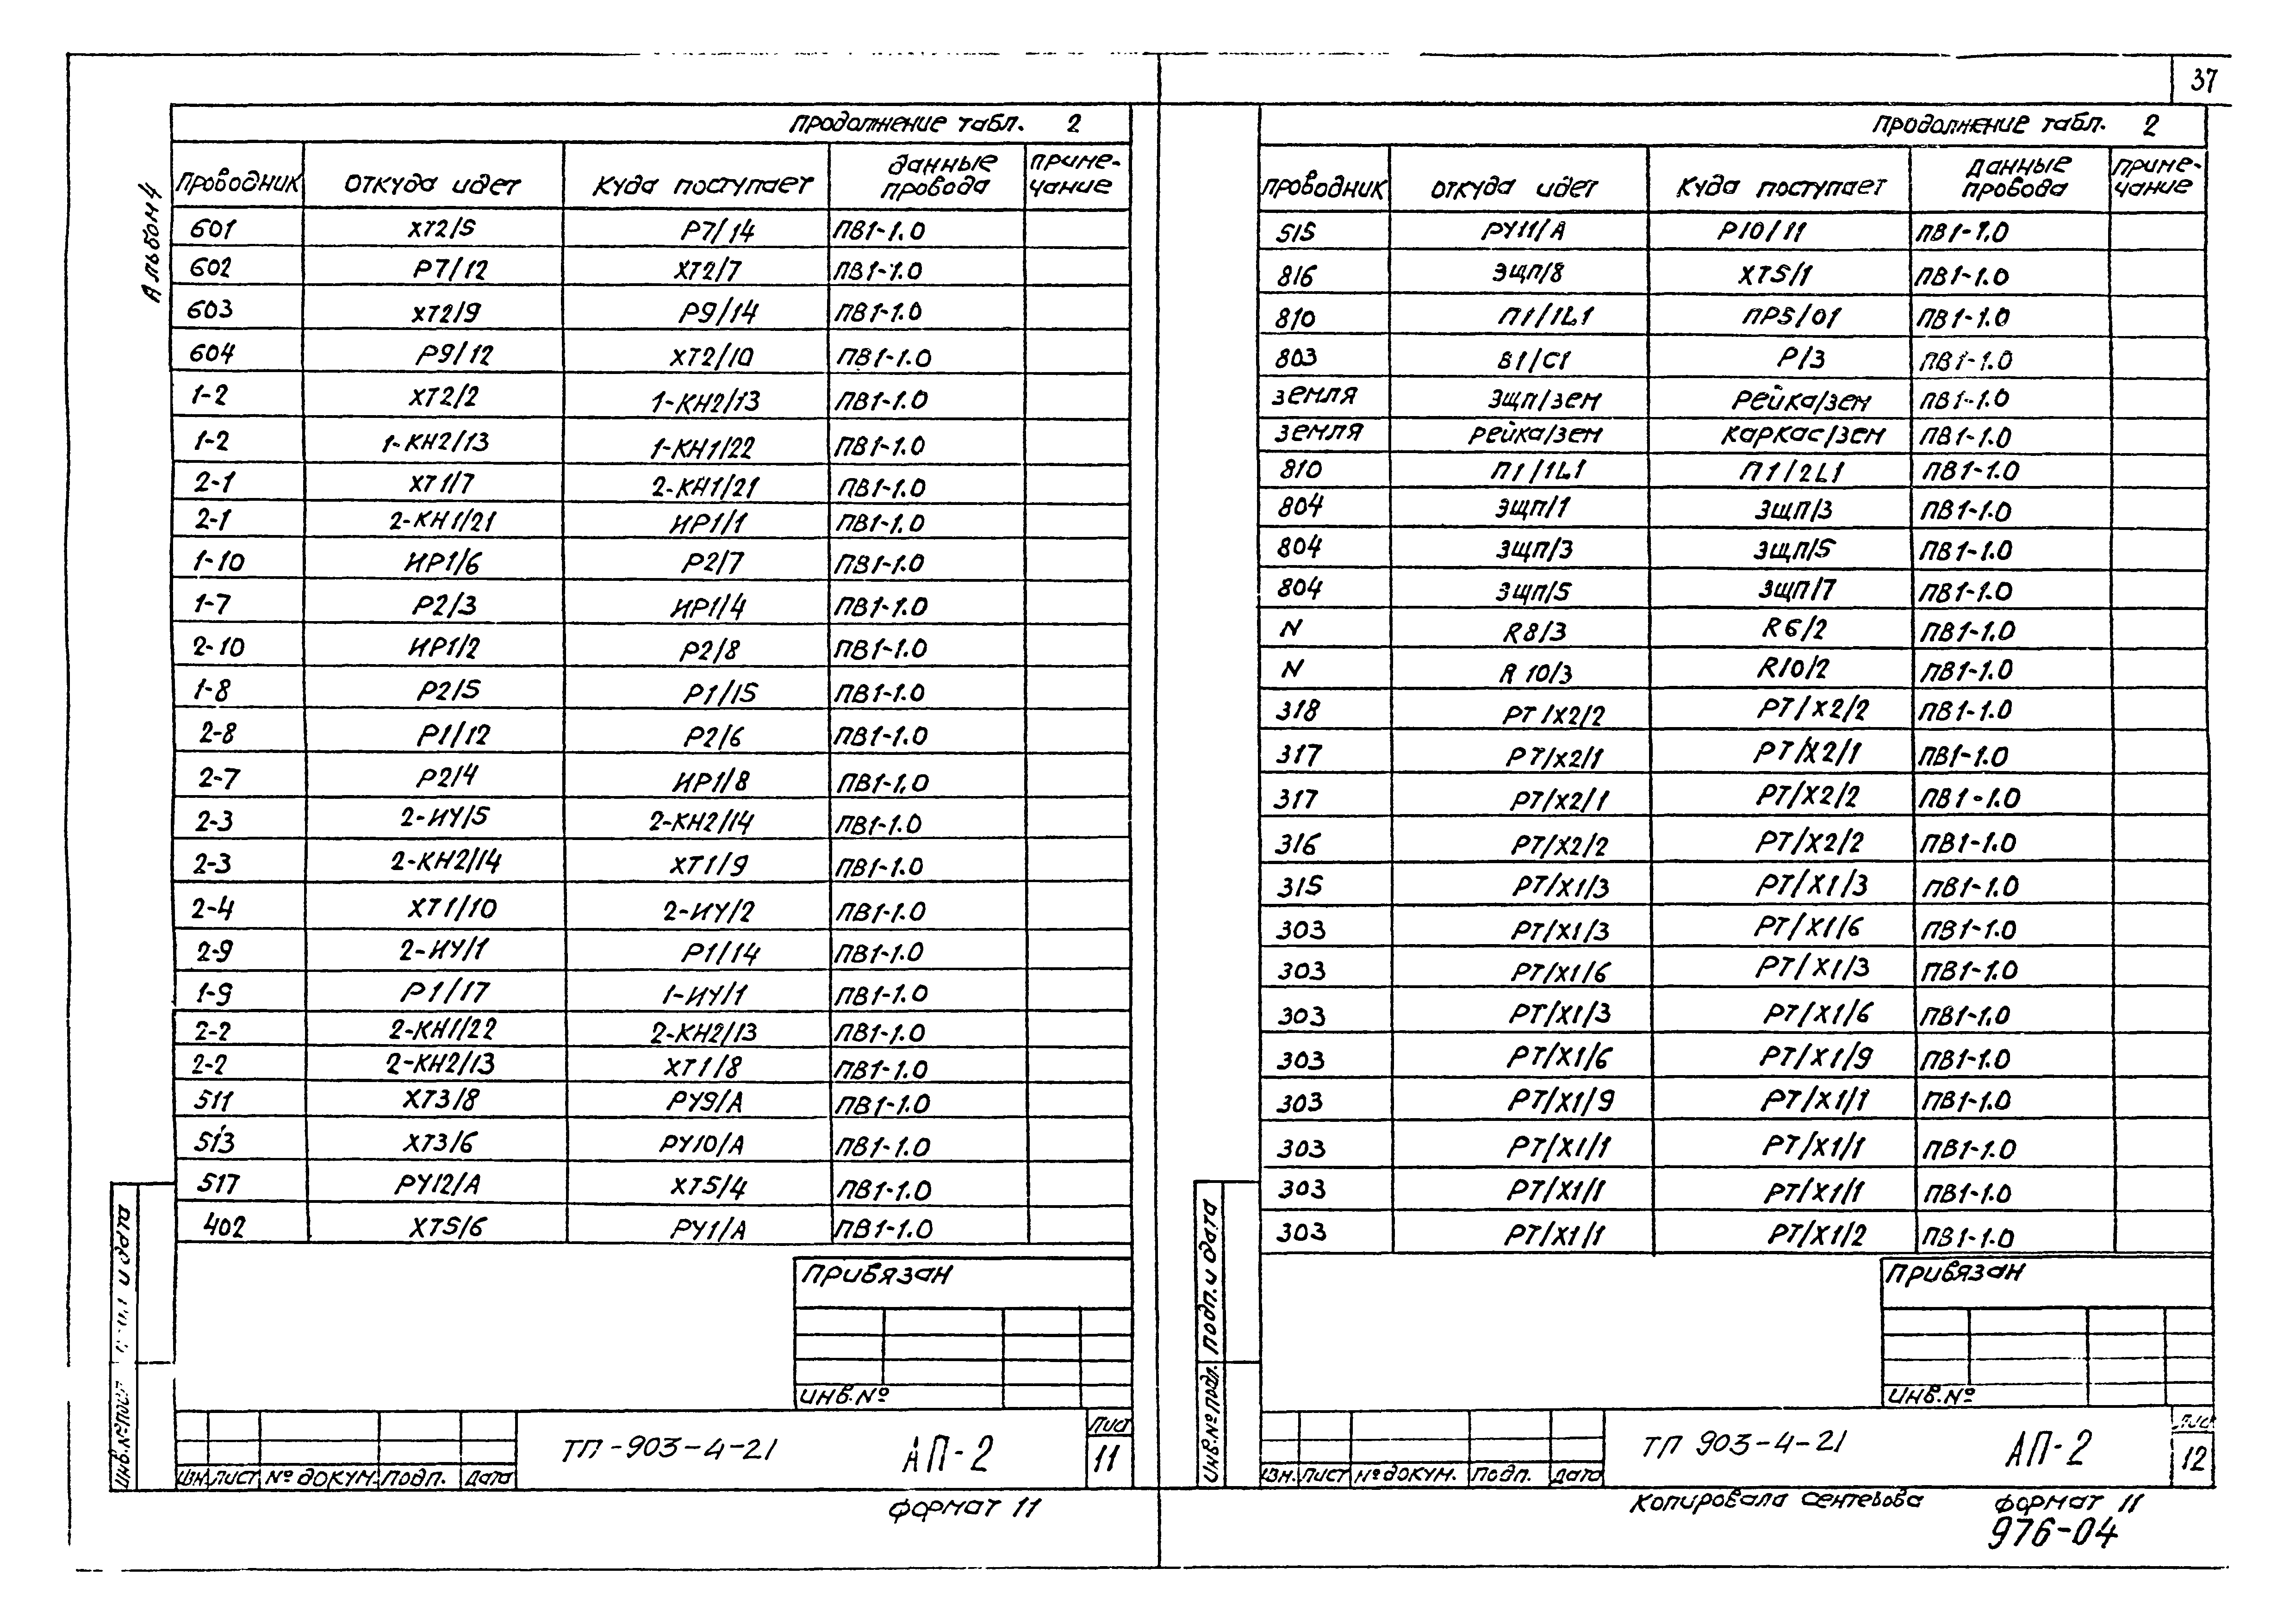 37
Альбом 4
Продолжение табл. 2
Проводник Откуда идет Куда поступает Данные провода Примечание
601 ХТ2/5 Р7/14 ПВ1-1.0
602 Р7/12 ХТ2/7 ПВ1-1.0
603 ХТ2/9 Р9/14 ПВ1-1.0
604 Р9/12 ХТ2/10 ПВ1-1.0
1-2 ХТ2/2 1-КН2/13 ПВ1-1.0
1-2 1-КН2/13 1-КН1/22 ПВ1-1.0
2-1 ХТ1/7 2-КН1/21 ПВ1-1.0
2-1 2-КН1/21 ИР1/1 ПВ1-1.0
1-10 ИР1/6 Р2/7 ПВ1-1.0
1-7 Р2/3 ИР1/4 ПВ1-1.0
2-10 ИР1/2 Р2/8 ПВ1-1.0
1-8 Р2/5 Р1/15 ПВ1-1.0
2-8 Р1/12 Р2/6 ПВ1-1.0
2-7 Р2/4 ИР1/8 ПВ1-1.0
2-3 2-ИУ/5 2-КН2/14 ПВ1-1.0
2-3 2-КН2/14 ХТ1/9 ПВ1-1.0
2-4 ХТ1/10 2-ИУ/2 ПВ1-1.0
2-9 2-ИУ/1 Р1/14 ПВ1-1.0
1-9 Р1/17 1-ИУ/1 ПВ1-1.0
2-2 2-КН1/22 2-КН2/13 ПВ1-1.0
2-2 2-КН2/13 ХТ1/8 ПВ1-1.0
511 ХТ3/8 РУ9/А ПВ1-1.0
513 ХТ3/6 РУ10/А ПВ1-1.0
517 РУ12/А ХТ5/4 ПВ1-1.0
402 ХТ5/6 РУ1/А ПВ1-1.0
Привязан
Инв.№
Изм. Лист № докум. Подп. Дата
ТП-903-4-21 АП-2 Лист 11
Инв.№ подл. и дата
Формат 11
Продолжение табл. 2
Проводник Откуда идет Куда поступает Данные провода Примечание
515 РУ11/А Р10/11 ПВ1-1.0
816 ЭЩП/8 ХТ5/1 ПВ1-1.0
810 П1/1L1 ПР5/01 ПВ1-1.0
803 В1/С1 Р/3 ПВ1-1.0
земля ЭЩП/зем Рейка/зем ПВ1-1.0
земля Рейка/зем Каркас/зем ПВ1-1.0
810 П1/1L1 П1/2L1 ПВ1-1.0
804 ЭЩП/1 ЭЩП/3 ПВ1-1.0
804 ЭЩП/3 ЭЩП/5 ПВ1-1.0
804 ЭЩП/5 ЭЩП/7 ПВ1-1.0
N R8/3 R6/2 ПВ1-1.0
N R 10/3 R10/2 ПВ1-1.0
318 РТ/Х2/2 РТ/Х2/2 ПВ1-1.0
317 РТ/Х2/1 РТ/Х2/1 ПВ1-1.0
317 РТ/Х2/1 РТ/Х2/2 ПВ1-1.0
316 РТ/Х2/2 РТ/Х2/2 ПВ1-1.0
315 РТ/Х1/3 РТ/Х1/3 ПВ1-1.0
303 РТ/Х1/3 РТ/Х1/6 ПВ1-1.0
303 РТ/Х1/6 РТ/Х1/3 ПВ1-1.0
303 РТ/Х1/3 РТ/Х1/6 ПВ1-1.0
303 РТ/Х1/6 РТ/Х1/9 ПВ1-1.0
303 РТ/Х1/9 РТ/Х1/1 ПВ1-1.0
303 РТ/Х1/1 РТ/Х1/1 ПВ1-1.0
303 РТ/Х1/1 РТ/Х1/1 ПВ1-1.0
303 РТ/Х1/1 РТ/Х1/2 ПВ1-1.0
Привязан
Инв.№
Изм. Лист № докум. Подп. Дата
ТП 903-4-21 АП-2 Лист 12
Инв.№ подл. Подп. и дата
Копировала Формат 11
976-04